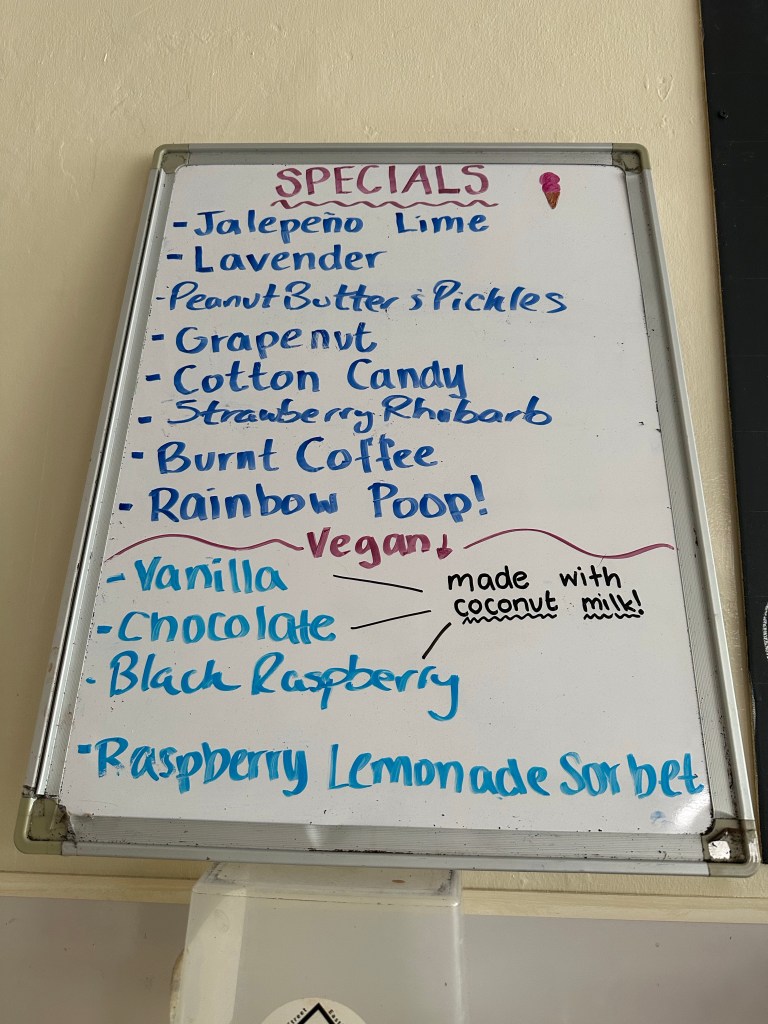 SPECIALS
- Jalepeño Lime
- Lavender
- Peanut Butter & Pickles
- Grapenut
- Cotton Candy
- Strawberry Rhubarb
- Burnt Coffee
- Rainbow Poop!
Vegan ↓
- Vanilla
- Chocolate
- Black Raspberry
made with
coconut milk!
- Raspberry Lemonade Sorbet
Street
East